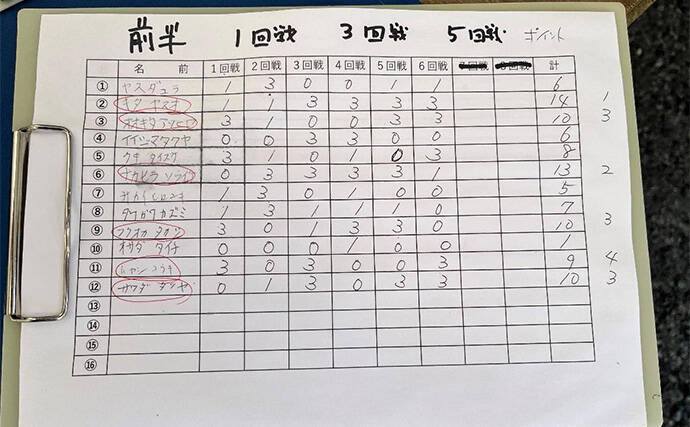 前半 1回戦 3回戦 5回戦 ポイント
名 前 1回戦 2回戦 3回戦 4回戦 5回戦 6回戦 計
① ヤスダユラ 1 3 0 0 1 1 6
② キタ ヤスオ 1 1 3 3 3 3 14 1
③ オオキタ 3 1 0 0 3 3 10 3
④ イイヅマタクヤ 0 0 3 3 0 0 6
⑤ ウキ タイスケ 3 1 0 1 0 3 8
⑥ ナカヒラ 0 3 3 3 3 1 13 2
⑦ 1 3 0 1 0 0 5
⑧ タケガワ カズミ 1 3 1 1 1 0 7
⑨ フクオカ タカシ 3 0 1 3 3 0 10 3
⑩ オサダ タイチ 0 0 0 1 0 0 1
⑪ 3 0 3 0 0 3 9 4
⑫ サワダ タツヤ 0 1 3 0 3 3 10 3
⑬
⑭
⑮
⑯